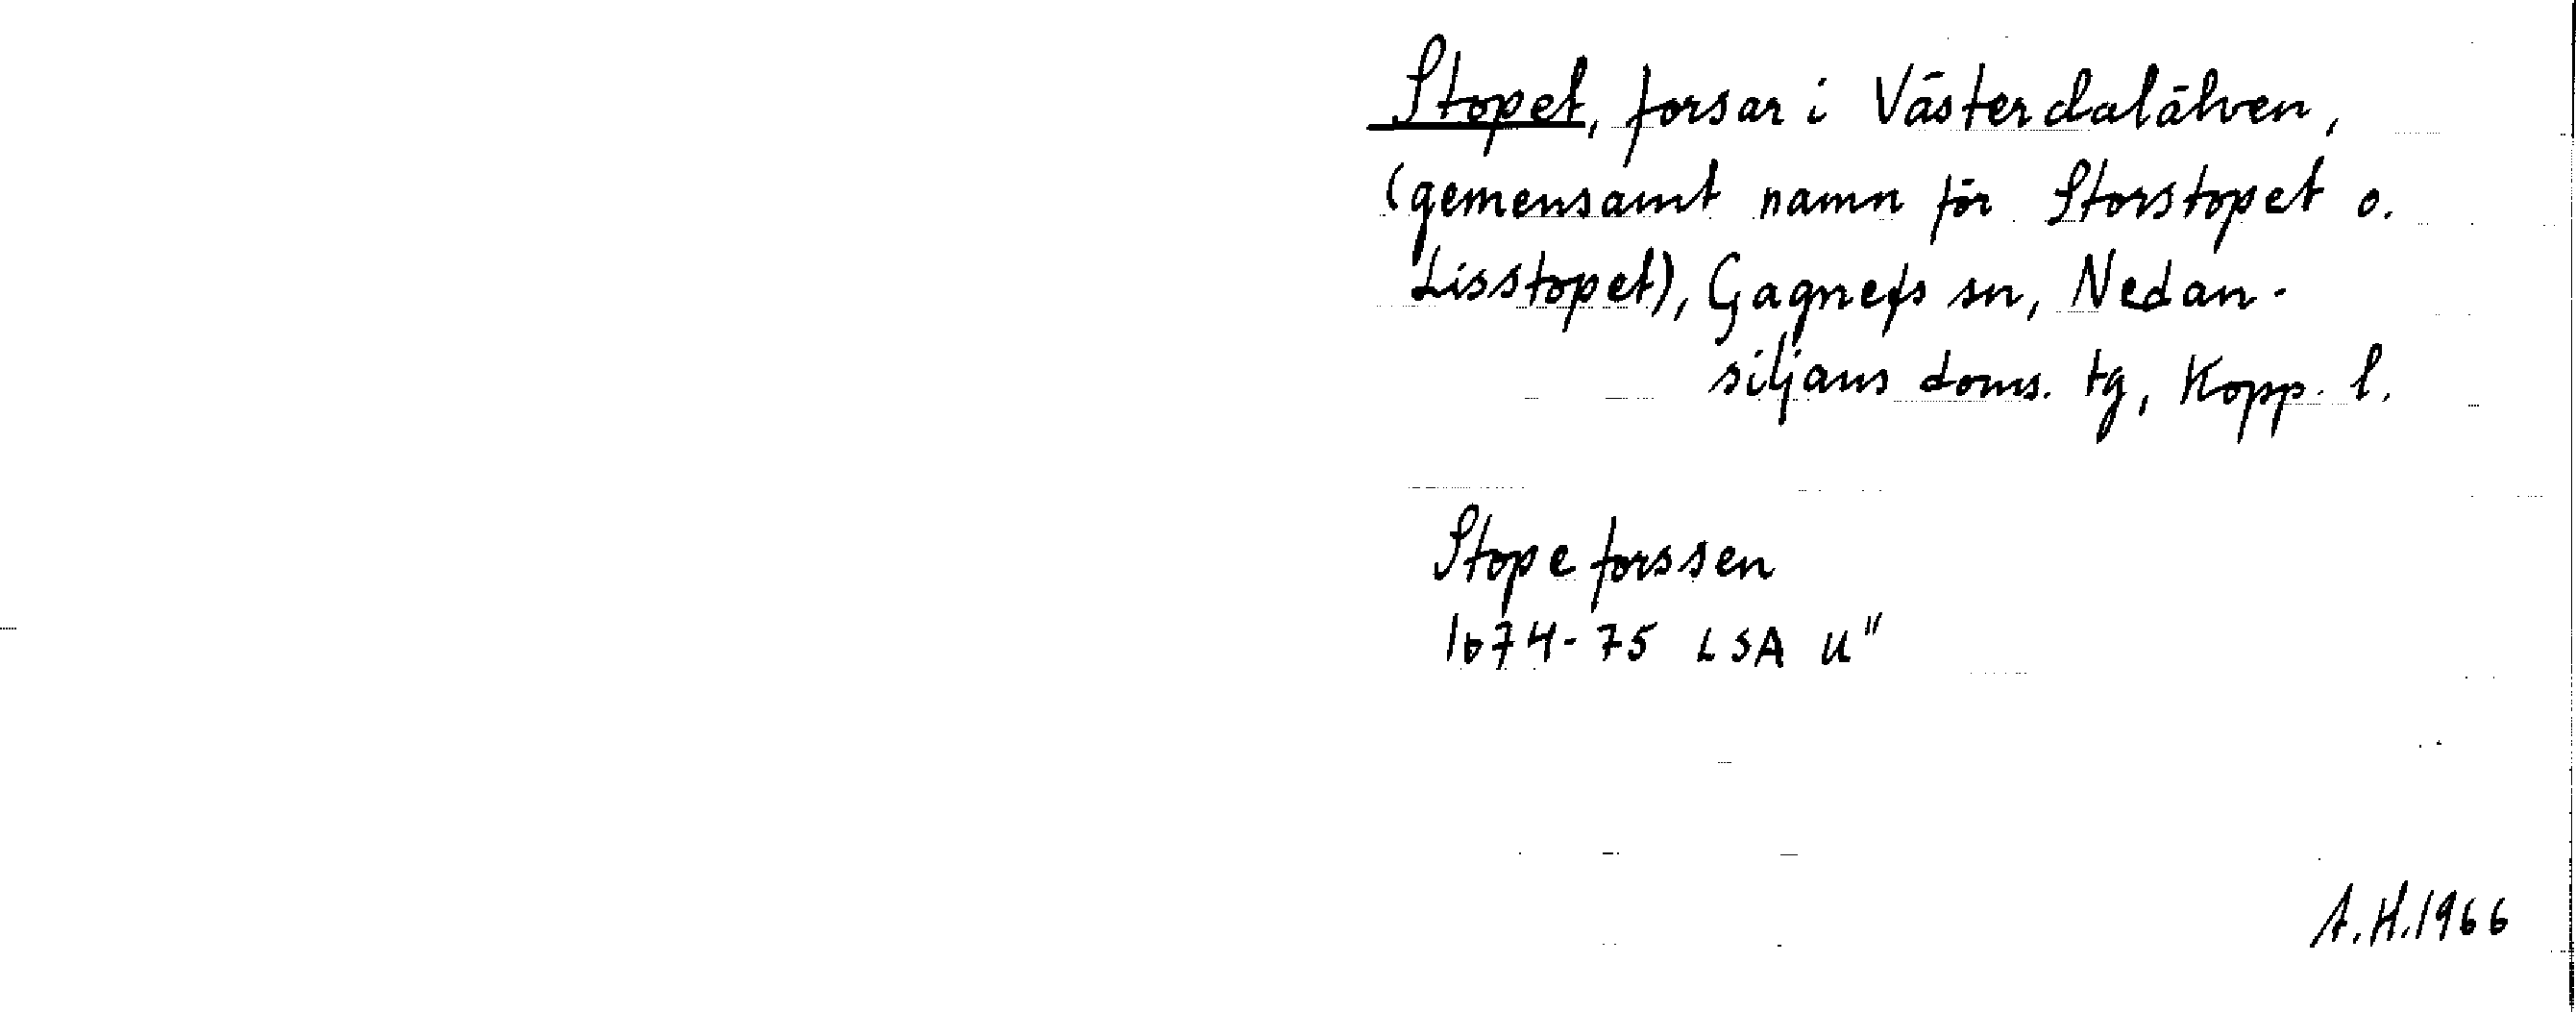 Stopet, forsar i Västerdalälven,
(gemensamt namn för Storstopet o.
Lisstopet), Gagnefs sn, Nedan-
siljans doms. tg, Kopp. l.
Stopeforssen
1674-75 LSA U"
A.H.1966